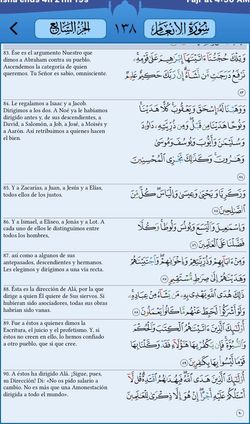 سورة الأنعام
١٣٨
الجزء السابع
83. Ese es el argumento Nuestro que
dimos a Abraham contra su pueblo.
Ascendemos la categoría de quien
queremos. Tu Señor es sabio, omnisciente.
وَتِلْكَ حُجَّتُنَا ءَاتَيْنَٰهَا إِبْرَٰهِيمَ عَلَىٰ قَوْمِهِۦ
نَرْفَعُ دَرَجَٰتٍ مَّن نَّشَآءُ إِنَّ رَبَّكَ حَكِيمٌ عَلِيمٌ
84. Le regalamos a Isaac y a Jacob.
Dirigimos a los dos. A Noé ya le habíamos
dirigido antes y, de sus descendientes, a
David, a Salomón, a Job, a José, a Moisés y
a Aarón. Así retribuimos a quienes hacen
el bien.
وَوَهَبْنَا لَهُۥٓ إِسْحَٰقَ وَيَعْقُوبَ كُلًّا هَدَيْنَا
وَنُوحًا هَدَيْنَا مِن قَبْلُ وَمِن ذُرِّيَّتِهِۦ دَاوُۥدَ
وَسُلَيْمَٰنَ وَأَيُّوبَ وَيُوسُفَ وَمُوسَىٰ
وَهَٰرُونَ وَكَذَٰلِكَ نَجْزِى ٱلْمُحْسِنِينَ
85. Y a Zacarías, a Juan, a Jesús y a Elías,
todos ellos de los justos.
وَزَكَرِيَّا وَيَحْيَىٰ وَعِيسَىٰ وَإِلْيَاسَ كُلٌّ مِّنَ
ٱلصَّٰلِحِينَ
86. Y a Ismael, a Eliseo, a Jonás y a Lot. A
cada uno de ellos le distinguimos entre
todos los hombres,
وَإِسْمَٰعِيلَ وَٱلْيَسَعَ وَيُونُسَ وَلُوطًا وَكُلًّا
فَضَّلْنَا عَلَى ٱلْعَٰلَمِينَ
87. así como a algunos de sus
antepasados, descendientes y hermanos.
Les elegimos y dirigimos a una vía recta.
وَمِنْ ءَابَآئِهِمْ وَذُرِّيَّٰتِهِمْ وَإِخْوَٰنِهِمْ وَٱجْتَبَيْنَٰهُمْ
وَهَدَيْنَٰهُمْ إِلَىٰ صِرَٰطٍ مُّسْتَقِيمٍ
88. Ésta es la dirección de Alá, por la que
dirige a quien Él quiere de Sus siervos. Si
hubieran sido asociadores, todas sus obras
habrían sido vanas.
ذَٰلِكَ هُدَى ٱللَّهِ يَهْدِى بِهِۦ مَن يَشَآءُ مِنْ عِبَادِهِۦ
وَلَوْ أَشْرَكُوا۟ لَحَبِطَ عَنْهُم مَّا كَانُوا۟ يَعْمَلُونَ
89. Fue a éstos a quienes dimos la
Escritura, el juicio y el profetismo. Y, si
éstos no creen en ello, lo hemos confiado
a otro pueblo, que sí que cree.
أُو۟لَٰٓئِكَ ٱلَّذِينَ ءَاتَيْنَٰهُمُ ٱلْكِتَٰبَ وَٱلْحُكْمَ
وَٱلنُّبُوَّةَ فَإِن يَكْفُرْ بِهَا هَٰٓؤُلَآءِ فَقَدْ وَكَّلْنَا بِهَا
قَوْمًا لَّيْسُوا۟ بِهَا بِكَٰفِرِينَ
90. A éstos ha dirigido Alá. ¡Sigue, pues,
su Dirección! Di: «No os pido salario a
cambio. No es más que una Amonestación
dirigida a todo el mundo».
أُو۟لَٰٓئِكَ ٱلَّذِينَ هَدَى ٱللَّهُ فَبِهُدَىٰهُمُ ٱقْتَدِهْ قُل لَّآ
أَسْـَٔلُكُمْ عَلَيْهِ أَجْرًا إِنْ هُوَ إِلَّا ذِكْرَىٰ لِلْعَٰلَمِينَ